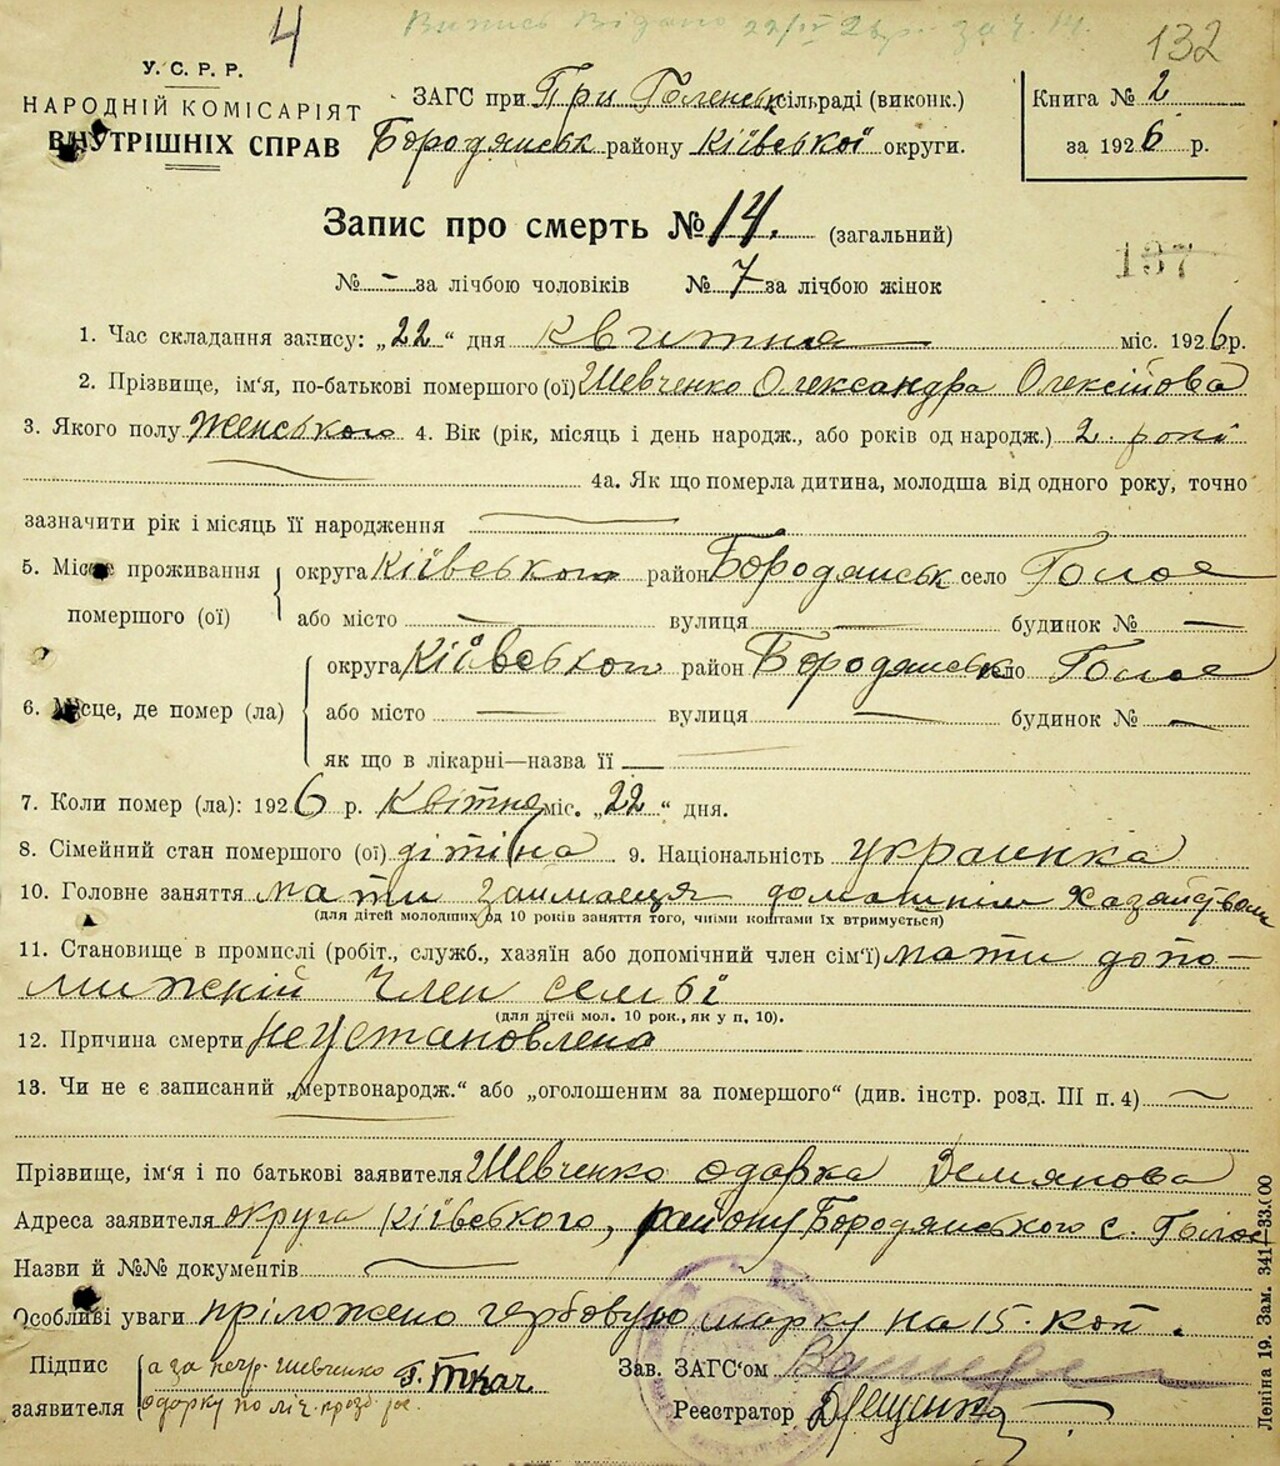 4
Випись Видано 22/IV 26 р. за ч. 14.
132
У. С. Р. Р.
НАРОДНІЙ КОМІСАРІЯТ
ВНУТРІШНІХ СПРАВ
ЗАГС при При Голенськ сільраді (виконк.)
Бородянськ району Київської округи.
Книга № 2
за 1926 р.
Запис про смерть № 14. (загальний)
137
№ - за лічбою чоловіків № 7 за лічбою жінок
1. Час складання запису: „22“ дня Квитня міс. 1926 р.
2. Прізвище, ім‘я, по-батькові помершого (ої) Шевченко Олександра Олексійова
3. Якого полу Женського 4. Вік (рік, місяць і день народж., або років од народж.) 2. рокі
4а. Як що померла дитина, молодша від одного року, точно
зазначити рік і місяць її народження
5. Місце проживання помершого (ої) округа Київського район Бородянськ село Голое
або місто — вулиця — будинок № —
6. Місце, де помер (ла) округа Київського район Бородянськ село Голое
або місто — вулиця — будинок № —
як що в лікарні—назва її —
7. Коли помер (ла): 1926 р. Квітня міс. „22“ дня.
8. Сімейний стан помершого (ої) дітіна 9. Національність украинка
10. Головне заняття мати займаеця домашнім хазайством
(для дітей молодших од 10 років заняття того, чиїми коштами їх втримується)
11. Становище в промислі (робіт., служб., хазяїн або допомічний член сім‘ї) мати допо-
мижкій член семьї
(для дітей мол. 10 рок., як у п. 10).
12. Причина смерти неустановлено
13. Чи не є записаний „мертвонародж.“ або „оголошеним за помершого“ (див. інстр. розд. III п. 4) —
Прізвище, ім‘я і по батькові заявителя Шевченко Одарка Демянова
Адреса заявителя округа Київського, району Бородянського с. Голое
Назви й №№ документів —
Особливі уваги пріложено гербовую марку на 15. коп.
Підпис заявителя а за негр. Шевченко Г. Ткач
Одарку по
Зав. ЗАГС‘ом
Реєстратор
Леніна 19. Зам. 341—33.000